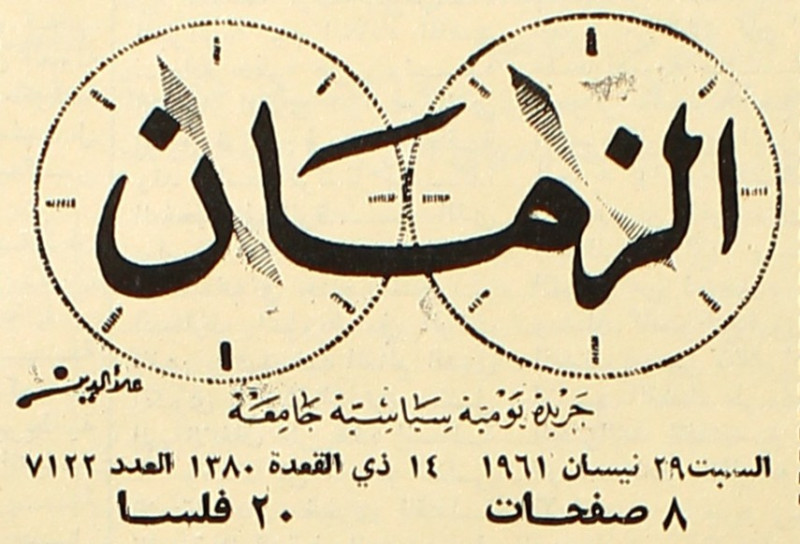 الزمان
علاء الدين
جريدة يومية سياسية جامعة
السبت ٢٩ نيسان ١٩٦١ ١٤ ذي القعدة ١٣٨٠ العدد ٧١٢٢
٨ صفحات ٢٠ فلسا